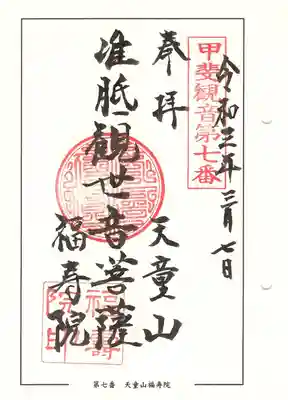 令和三年三月七日
甲斐観音第七番
奉拝
天童山
准胝観世音菩薩
福寿院
福壽院印
第七番　天童山福寿院